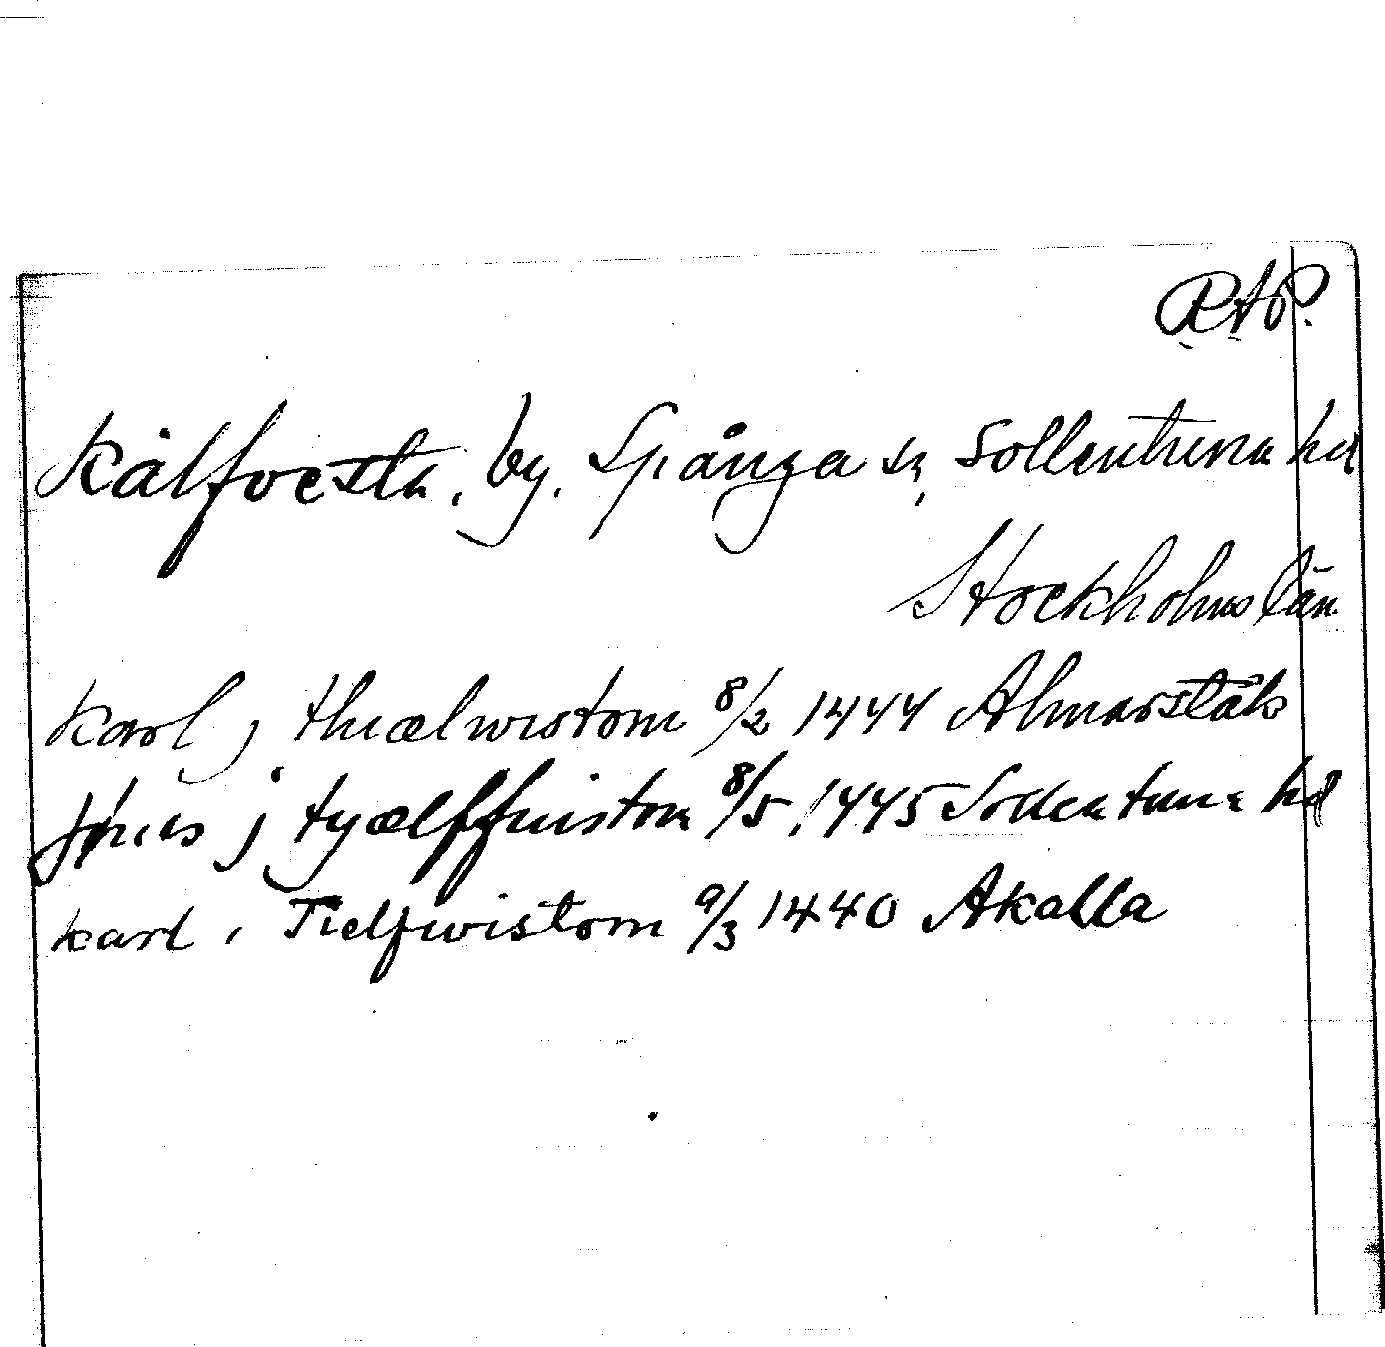 RAP.
Kälfvesta, by, Spånga sn, Sollentuna hd
Stockholms län
Karl j thiælwistom 8/2 1444 Almarstäk
Jönis j tyælffuistom 8/5 1445 Sollentuna hd
Karl i Tielfwistom 9/3 1440 Akalla